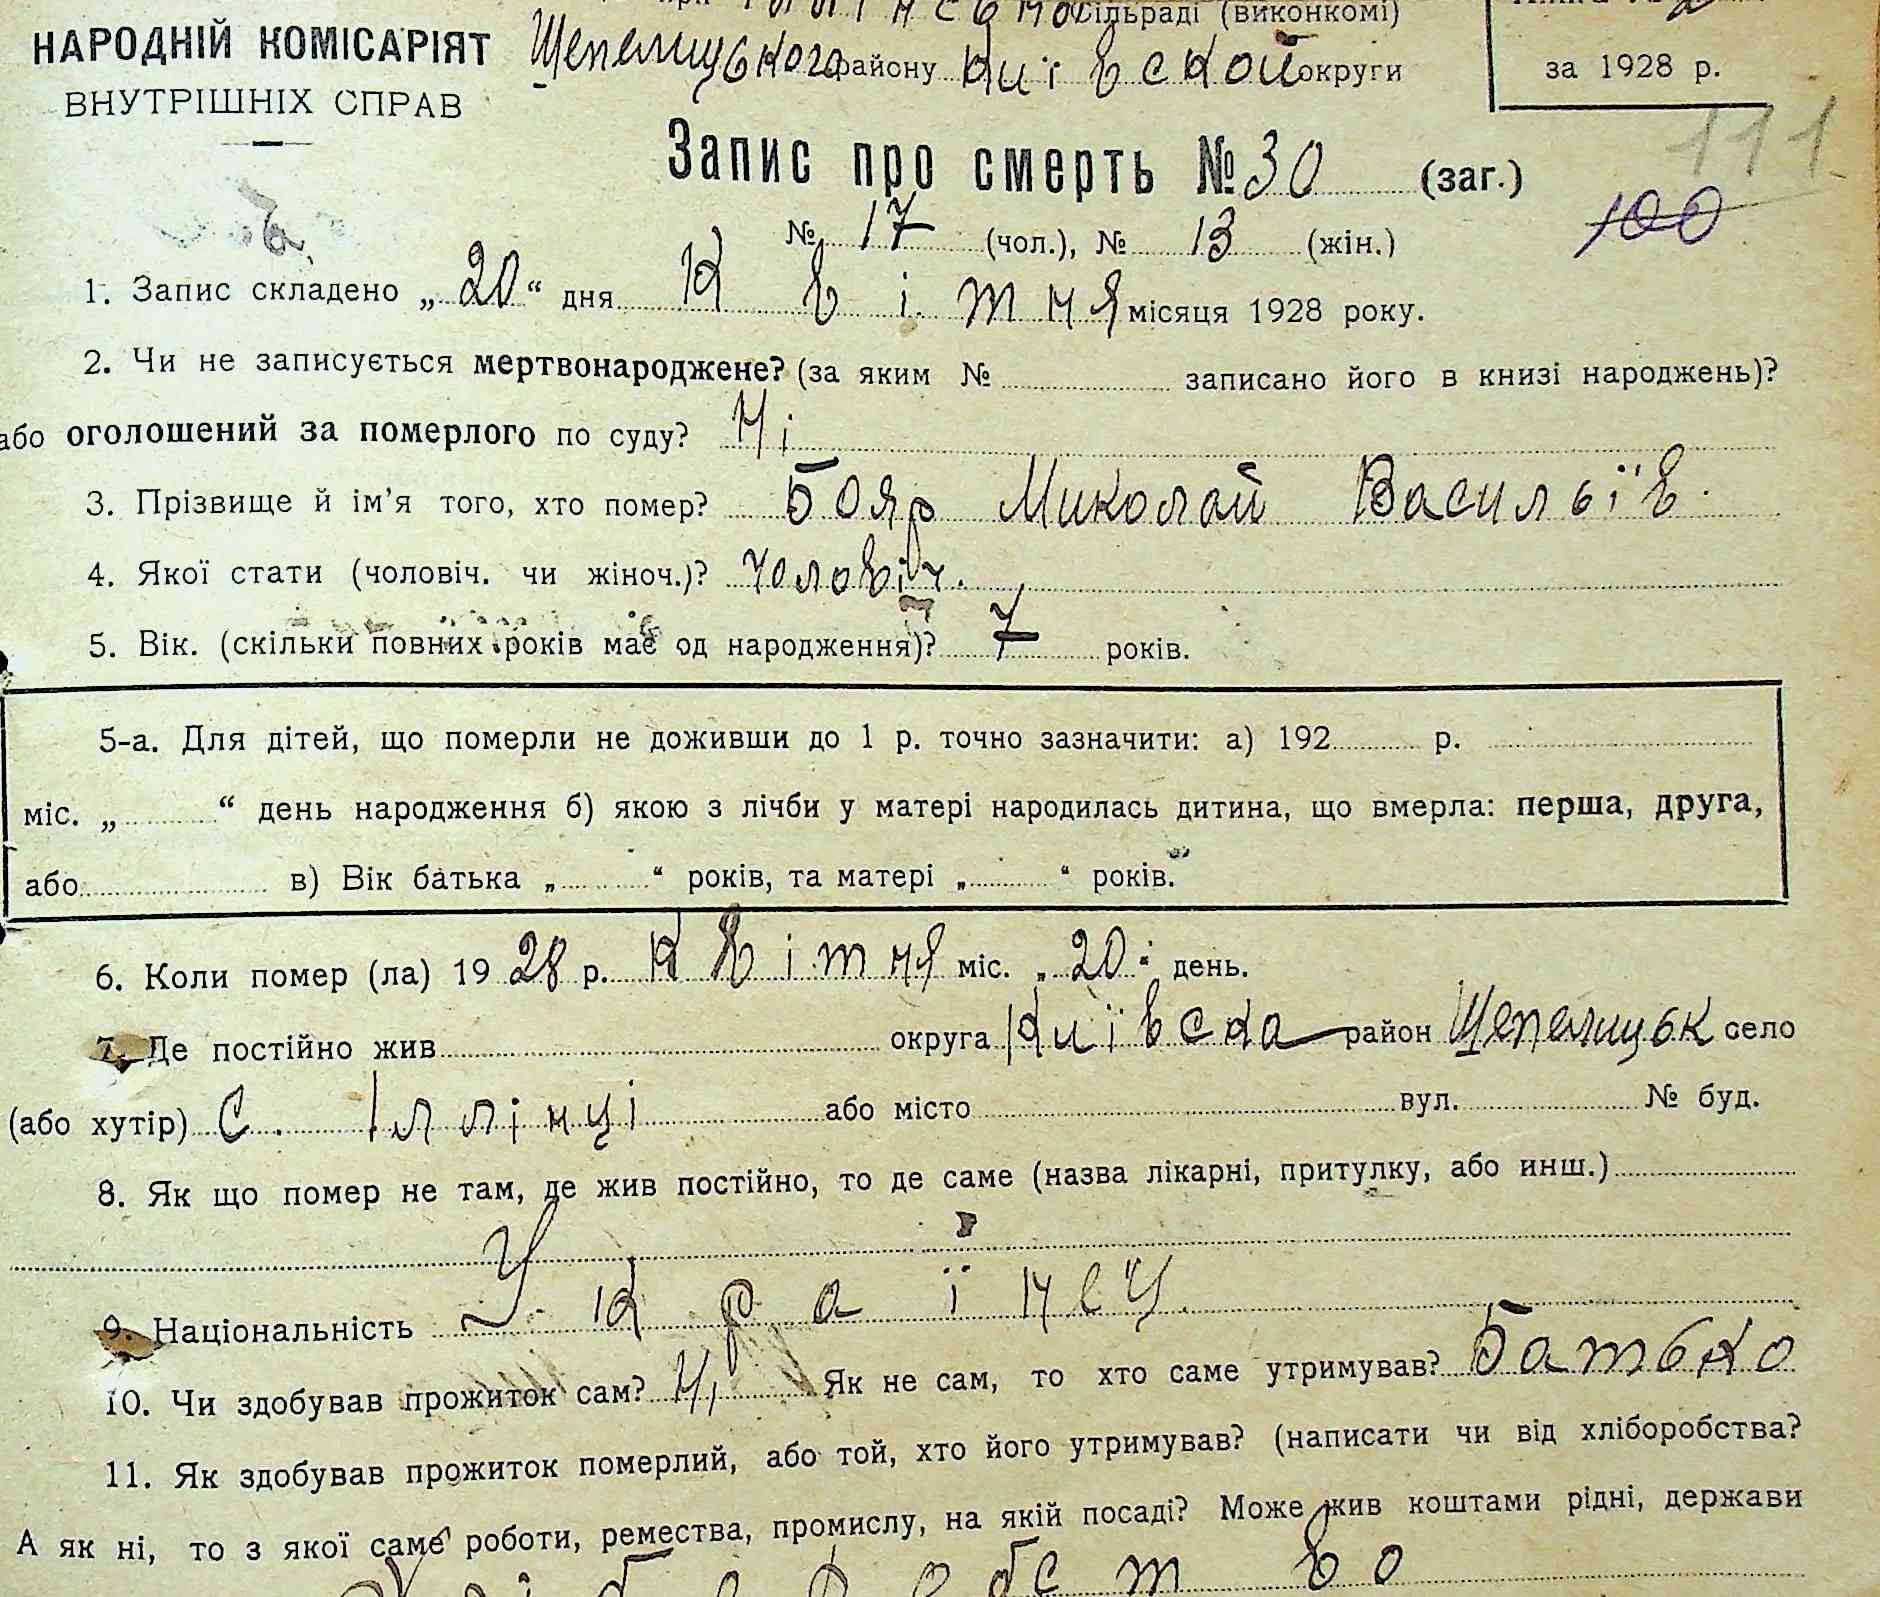 при Іллінській сільраді (виконкомі)
НАРОДНІЙ КОМІСАРІЯТ
ВНУТРІШНІХ СПРАВ
Щепелицького району Київской округи
за 1928 р.
111
Запис про смерть № 30 (заг.)
100
№ 17 (чол.), № 13 (жін.)
1. Запис складено „20“ дня Квітня місяця 1928 року.
2. Чи не записується мертвонароджене? (за яким № записано його в книзі народжень)?
або оголошений за померлого по суду? Ні
3. Прізвище й ім'я того, хто помер? Бояр Миколай Васильїв.
4. Якої стати (чоловіч. чи жіноч.)? чоловіч.
5. Вік. (скільки повних років має од народження)? 7 років.
5-а. Для дітей, що померли не доживши до 1 р. точно зазначити: а) 192 р.
міс. „ “ день народження б) якою з лічби у матері народилась дитина, що вмерла: перша, друга,
або в) Вік батька „ “ років, та матері „ “ років.
6. Коли помер (ла) 1928 р. Квітня міс. „20“ день.
7. Де постійно жив округа Київска район Щепелицьк село
(або хутір) С. Іллінці або місто вул. № буд.
8. Як що помер не там, де жив постійно, то де саме (назва лікарні, притулку, або инш.)
9. Національність Українец
10. Чи здобував прожиток сам? Ні Як не сам, то хто саме утримував? Батько
11. Як здобував прожиток померлий, або той, хто його утримував? (написати чи від хліборобства?
А як ні, то з якої саме роботи, ремества, промислу, на якій посаді? Може жив коштами рідні, держави
Хліборобство